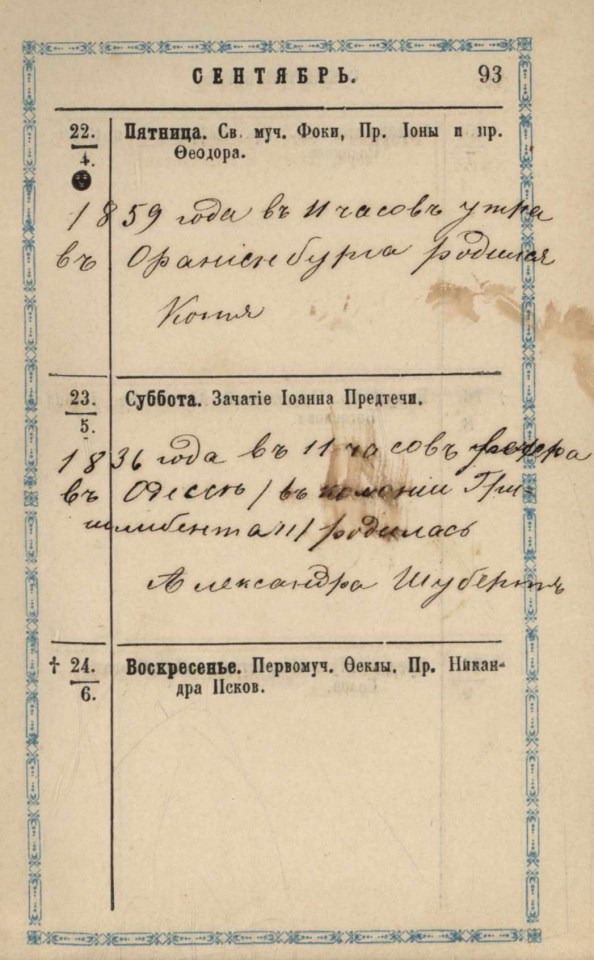 СЕНТЯБРЬ. 93
22. Пятница. Св. муч. Фоки, Пр. Іоны и пр.
4. Ѳеодора.
1859 года въ 11 часовъ утра
въ Ораніенбургѣ родился
Костя
23. Суббота. Зачатіе Іоанна Предтечи.
5.
1836 года въ 11 часовъ вечера
въ Одессѣ / въ колоніи
родилась
Александра Шубертъ
† 24. Воскресенье. Первомуч. Ѳеклы. Пр. Никан-
6. дра Псков.